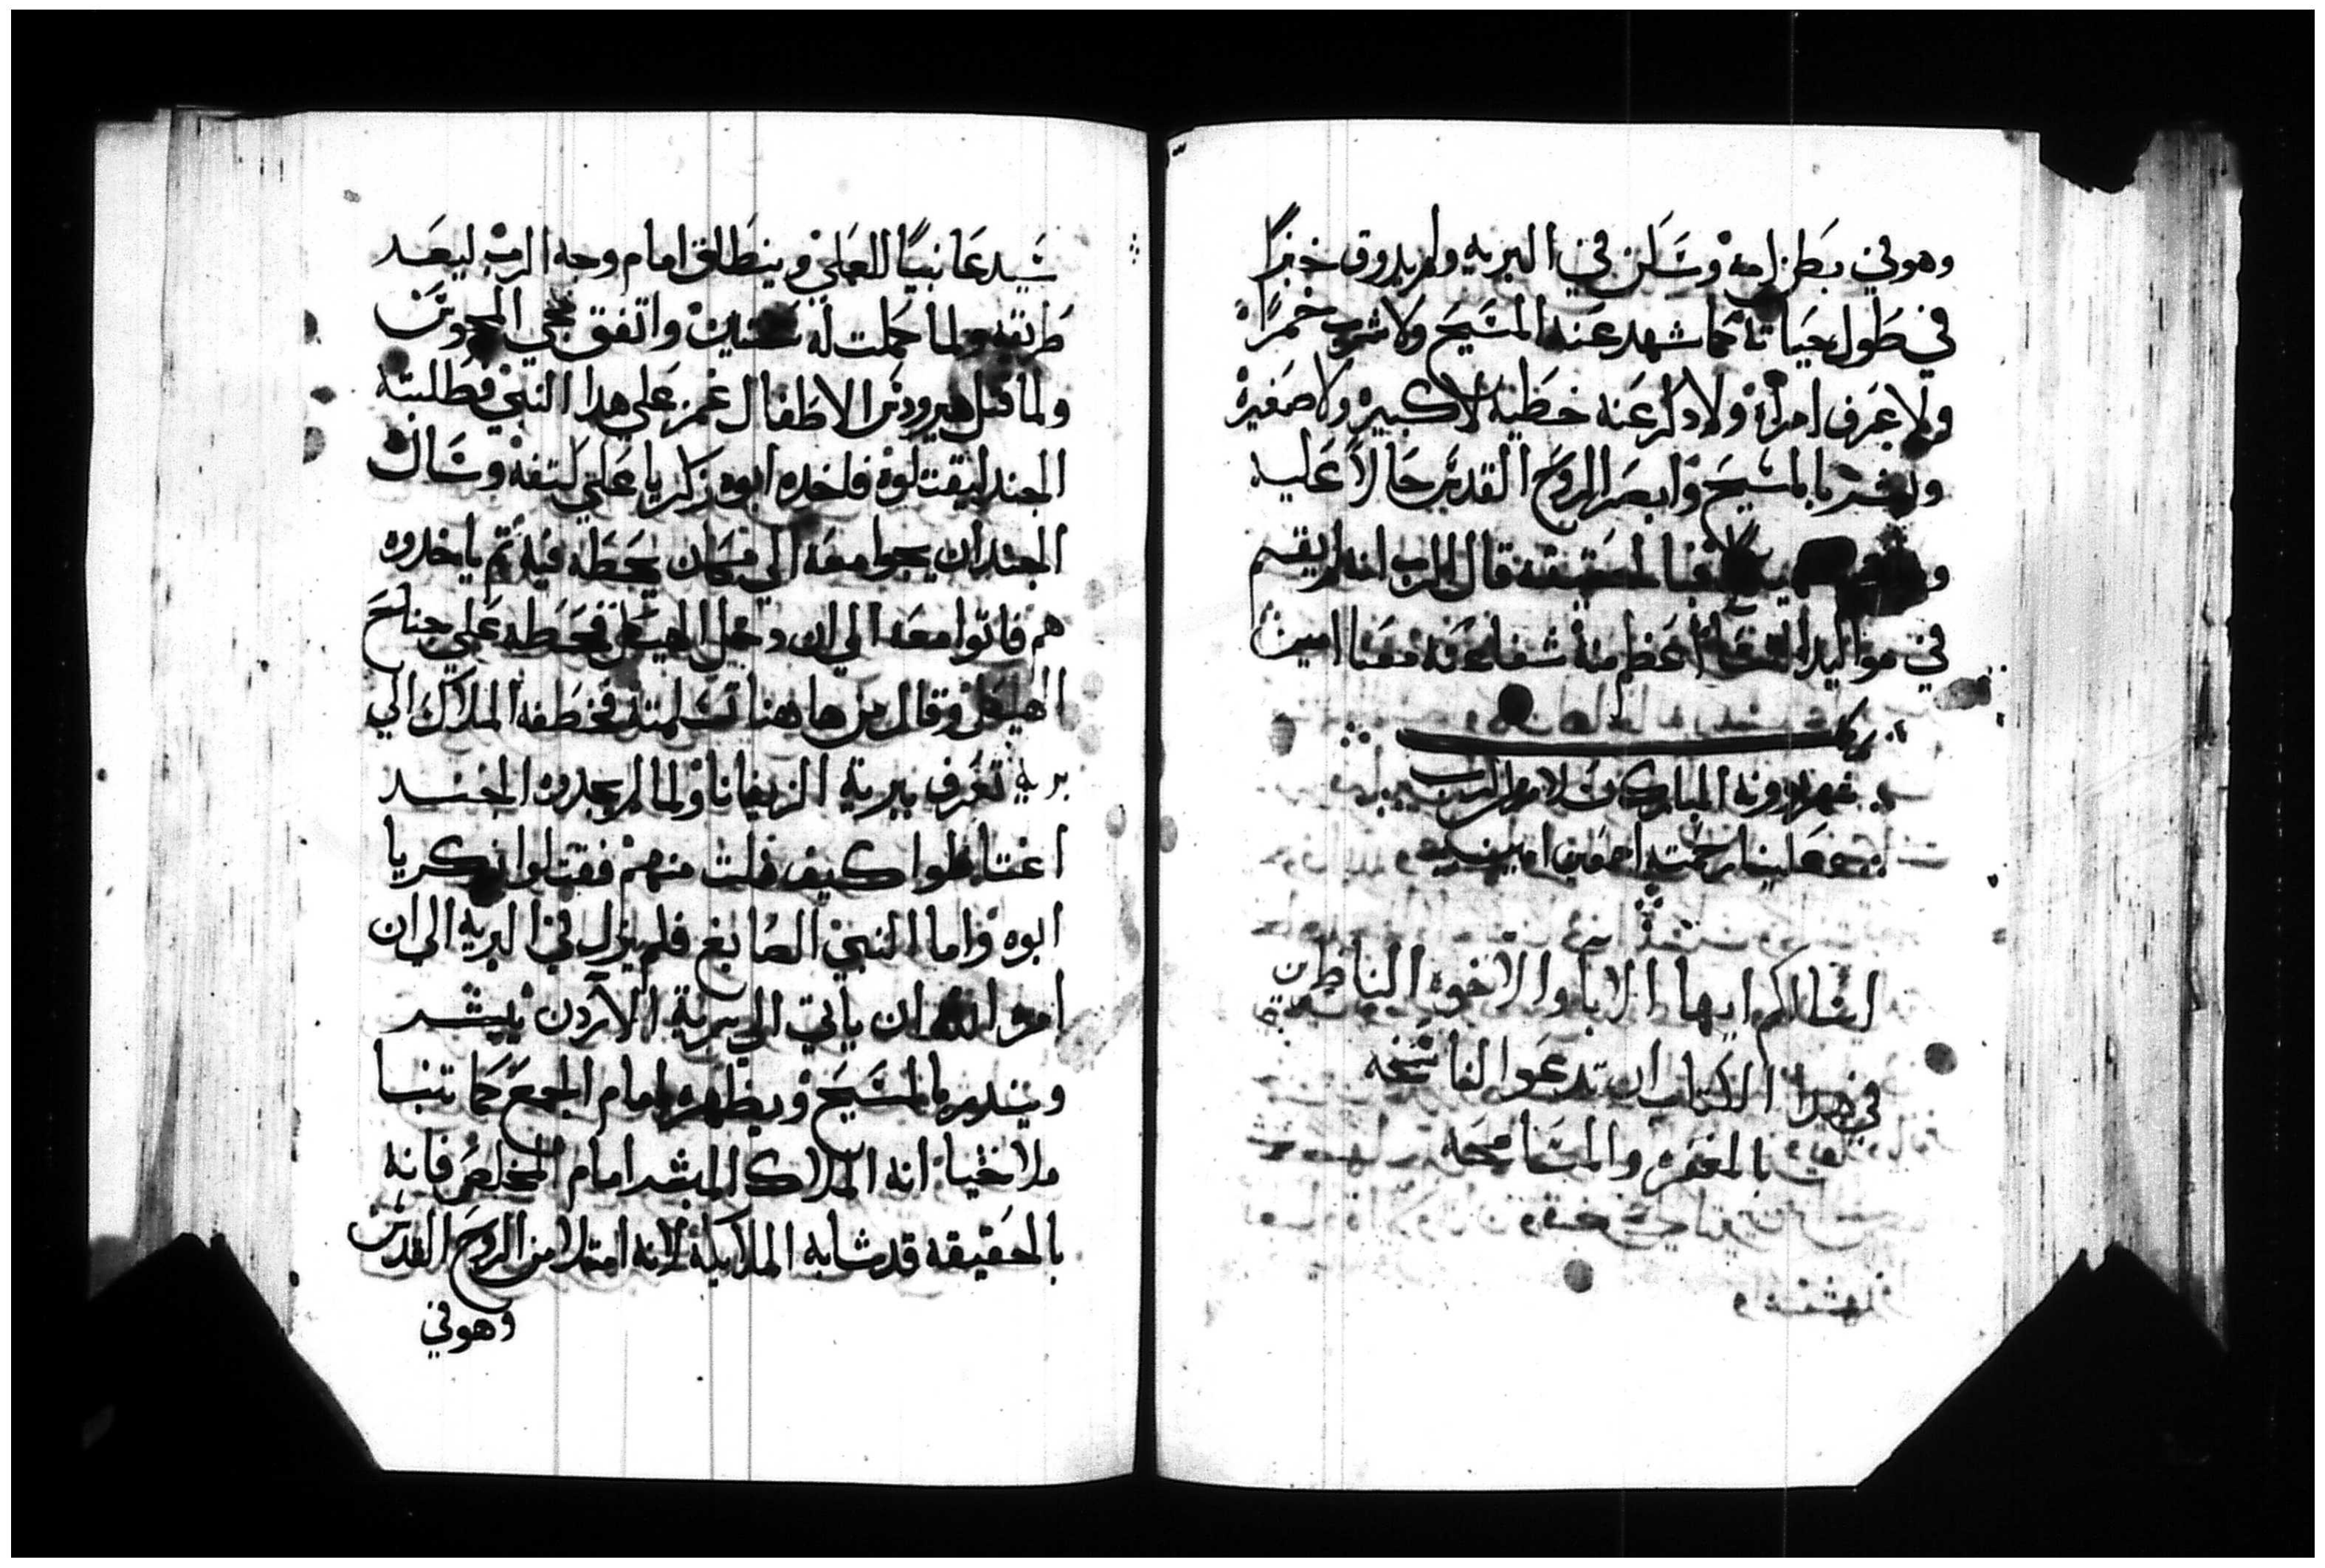 سيدعا نبيًا للعلي وينطلق امام وجه الرب ليعد
طريقه ولما كملت له سنتين واتفق مجي المجوس
ولما قتل هيرودس الاطفال غمز علي هدا النبي فطلبته
الجند ليقتلوه فاخده ابوه زكريا علي كتفه وسال
الجند ان يجوا معه الي مكان يحطه فيه تم ياخدوه
هم فاتوا معه الي ان دخل الهيكل فحطه علي جناح
الهيكل وقال من هاهنا تسلمته فخطفه الملاك الي
برية تعرف ببرية الزيفانا ولما لم يجدوه الجند
اغتاظوا كيف فلت منهم فقتلوا زكريا
ابوه واما النبي الصابغ فلم يزل في البريه الي ان
امره الله ان ياتي الي برية الاردن يبشر
ويندر بالمسيح ويظهره امام الجمع كما تنبا
ملاخيا انه الملاك المبشر امام المخلص فانه
بالحقيقه قد شابه الملايكة لانه امتلا من الروح القدس
وهوفي
وهوفي بطن امه وسكن في البريه ولم يدوق خبزًا
في طول حياته كما شهد عنه المسيح ولا شرب خمرًا
ولا عرف امراة ولا دكر عنه خطية لا كبيرة ولا صغيرة
وبشر بالمسيح وابصر الروح القدس حالا عليه
الحقيقه قال الرب انه لم يقم
في مواليد النسا اعظم منه شفاعته معنا امين
المبارك بسلام من الرب
علينا رحمته اجمعين امين
اسالكم ايها الابا والاخوه الناظرين
في هدا الكتاب ان تدعوا لناسخه
بالمغفره والمسامحه